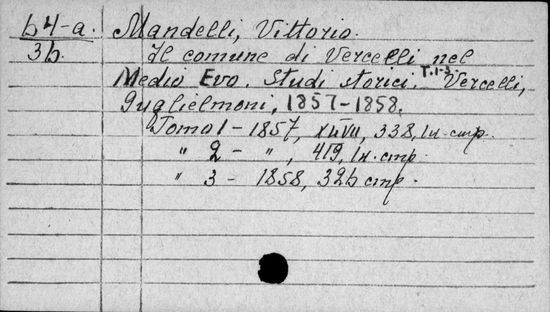 b4-a. Mandelli, Vittorio.
3b. Il comune di Vercelli nel
Medio Evo. Studi storici. T.1-3. Vercelli,
Guglielmoni, 1857-1858.
Tomo 1 - 1857, 338, 1 н. стр.
" 2 - ", 419, 1 н. стр.
" 3 - 1858, 326 стр.